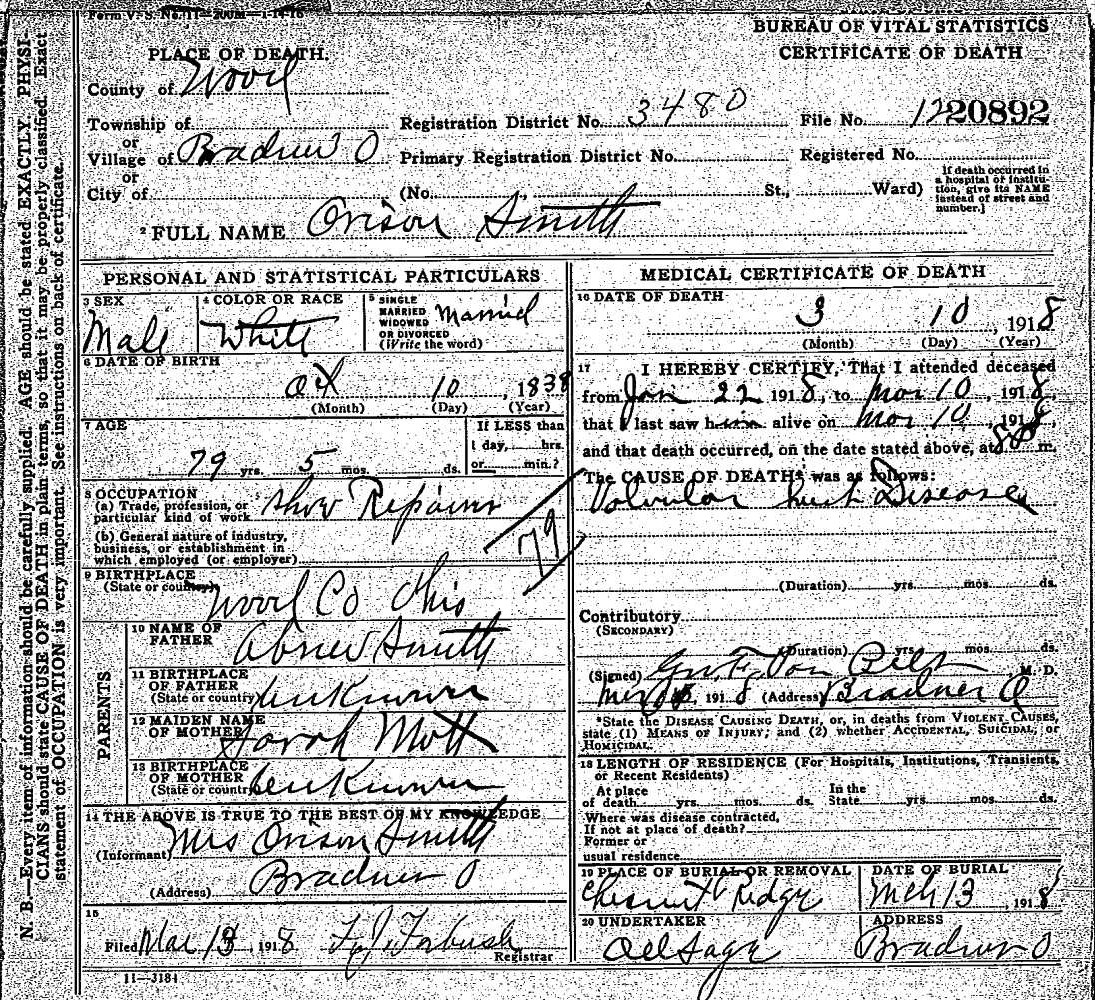 Form V. S. No. 11—200M—1-14-16
BUREAU OF VITAL STATISTICS
CERTIFICATE OF DEATH
PLACE OF DEATH.
County of Wood
Township of
Registration District No. 3480
File No. 20892
or
Village of Bradner O
Primary Registration District No.
Registered No.
or
City of
(No. , St., Ward)
If death occurred in
a hospital or institu-
tion, give its NAME
instead of street and
number.]
2 FULL NAME Orison Smith
PERSONAL AND STATISTICAL PARTICULARS
3 SEX
Male
4 COLOR OR RACE
White
5 SINGLE
MARRIED
WIDOWED
OR DIVORCED
(Write the word)
Married
6 DATE OF BIRTH
Oct 10, 1838
(Month) (Day) (Year)
7 AGE
79 yrs. 5 mos. ds.
If LESS than
1 day, hrs.
or min.?
8 OCCUPATION
(a) Trade, profession, or
particular kind of work Shoe Repairer
(b) General nature of industry,
business, or establishment in
which employed (or employer)
79
9 BIRTHPLACE
(State or country)
Wood Co Ohio
PARENTS
10 NAME OF
FATHER
Abner Smith
11 BIRTHPLACE
OF FATHER
(State or country)
unknown
12 MAIDEN NAME
OF MOTHER
Sarah Mott
13 BIRTHPLACE
OF MOTHER
(State or country)
unknown
14 THE ABOVE IS TRUE TO THE BEST OF MY KNOWLEDGE
(Informant) Mrs Orison Smith
(Address) Bradner O
15
Filed Mar 13, 1918 Registrar
11—3184
MEDICAL CERTIFICATE OF DEATH
16 DATE OF DEATH
3 10, 1918
(Month) (Day) (Year)
17 I HEREBY CERTIFY, That I attended deceased
from Jan 22 1918, to Mar 10, 1918,
that I last saw him alive on Mar 10, 1918,
and that death occurred, on the date stated above, at m.
The CAUSE OF DEATH* was as follows:
Valvular heart Disease
(Duration) yrs. mos. ds.
Contributory
(SECONDARY)
(Duration) yrs. mos. ds.
(Signed) Van Pelt M. D.
1918 (Address) Bradner O
*State the DISEASE CAUSING DEATH, or, in deaths from VIOLENT CAUSES,
state (1) MEANS OF INJURY; and (2) whether ACCIDENTAL, SUICIDAL, or
HOMICIDAL.
18 LENGTH OF RESIDENCE (For Hospitals, Institutions, Transients,
or Recent Residents)
At place In the
of death yrs. mos. ds. State yrs. mos. ds.
Where was disease contracted,
If not at place of death?
Former or
usual residence
19 PLACE OF BURIAL OR REMOVAL
Chesnut Ridge
DATE OF BURIAL
Mch 13, 1918
20 UNDERTAKER
ADDRESS
Bradner O
N. B—Every item of information should be carefully supplied. AGE should be stated EXACTLY. PHYSI-
CIANS should state CAUSE OF DEATH in plain terms, so that it may be properly classified. Exact
statement of OCCUPATION is very important. See instructions on back of certificate.